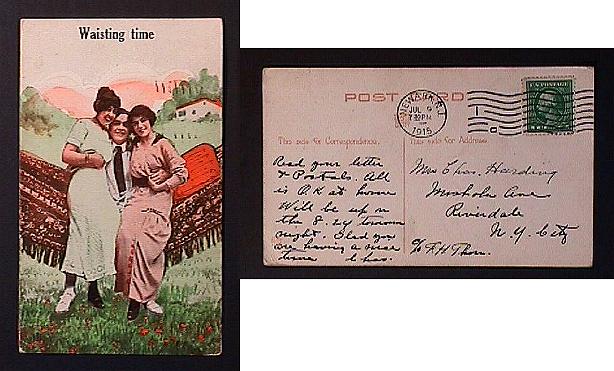 Waisting time
POST CARD
NEWARK, N.J.
JUL 9
7-30 PM
1915
U.S. POSTAGE
This side for Correspondence.
This side for Address.
Read your letter
& Postals. All
is O.K at home
Will be up on
the 8.24 tomorrow
night. Glad you
are having a nice
time Chas.
Mrs Chas. Harding
Moshola Ave
Riverdale
N.Y. City
c/o F.H Thom.